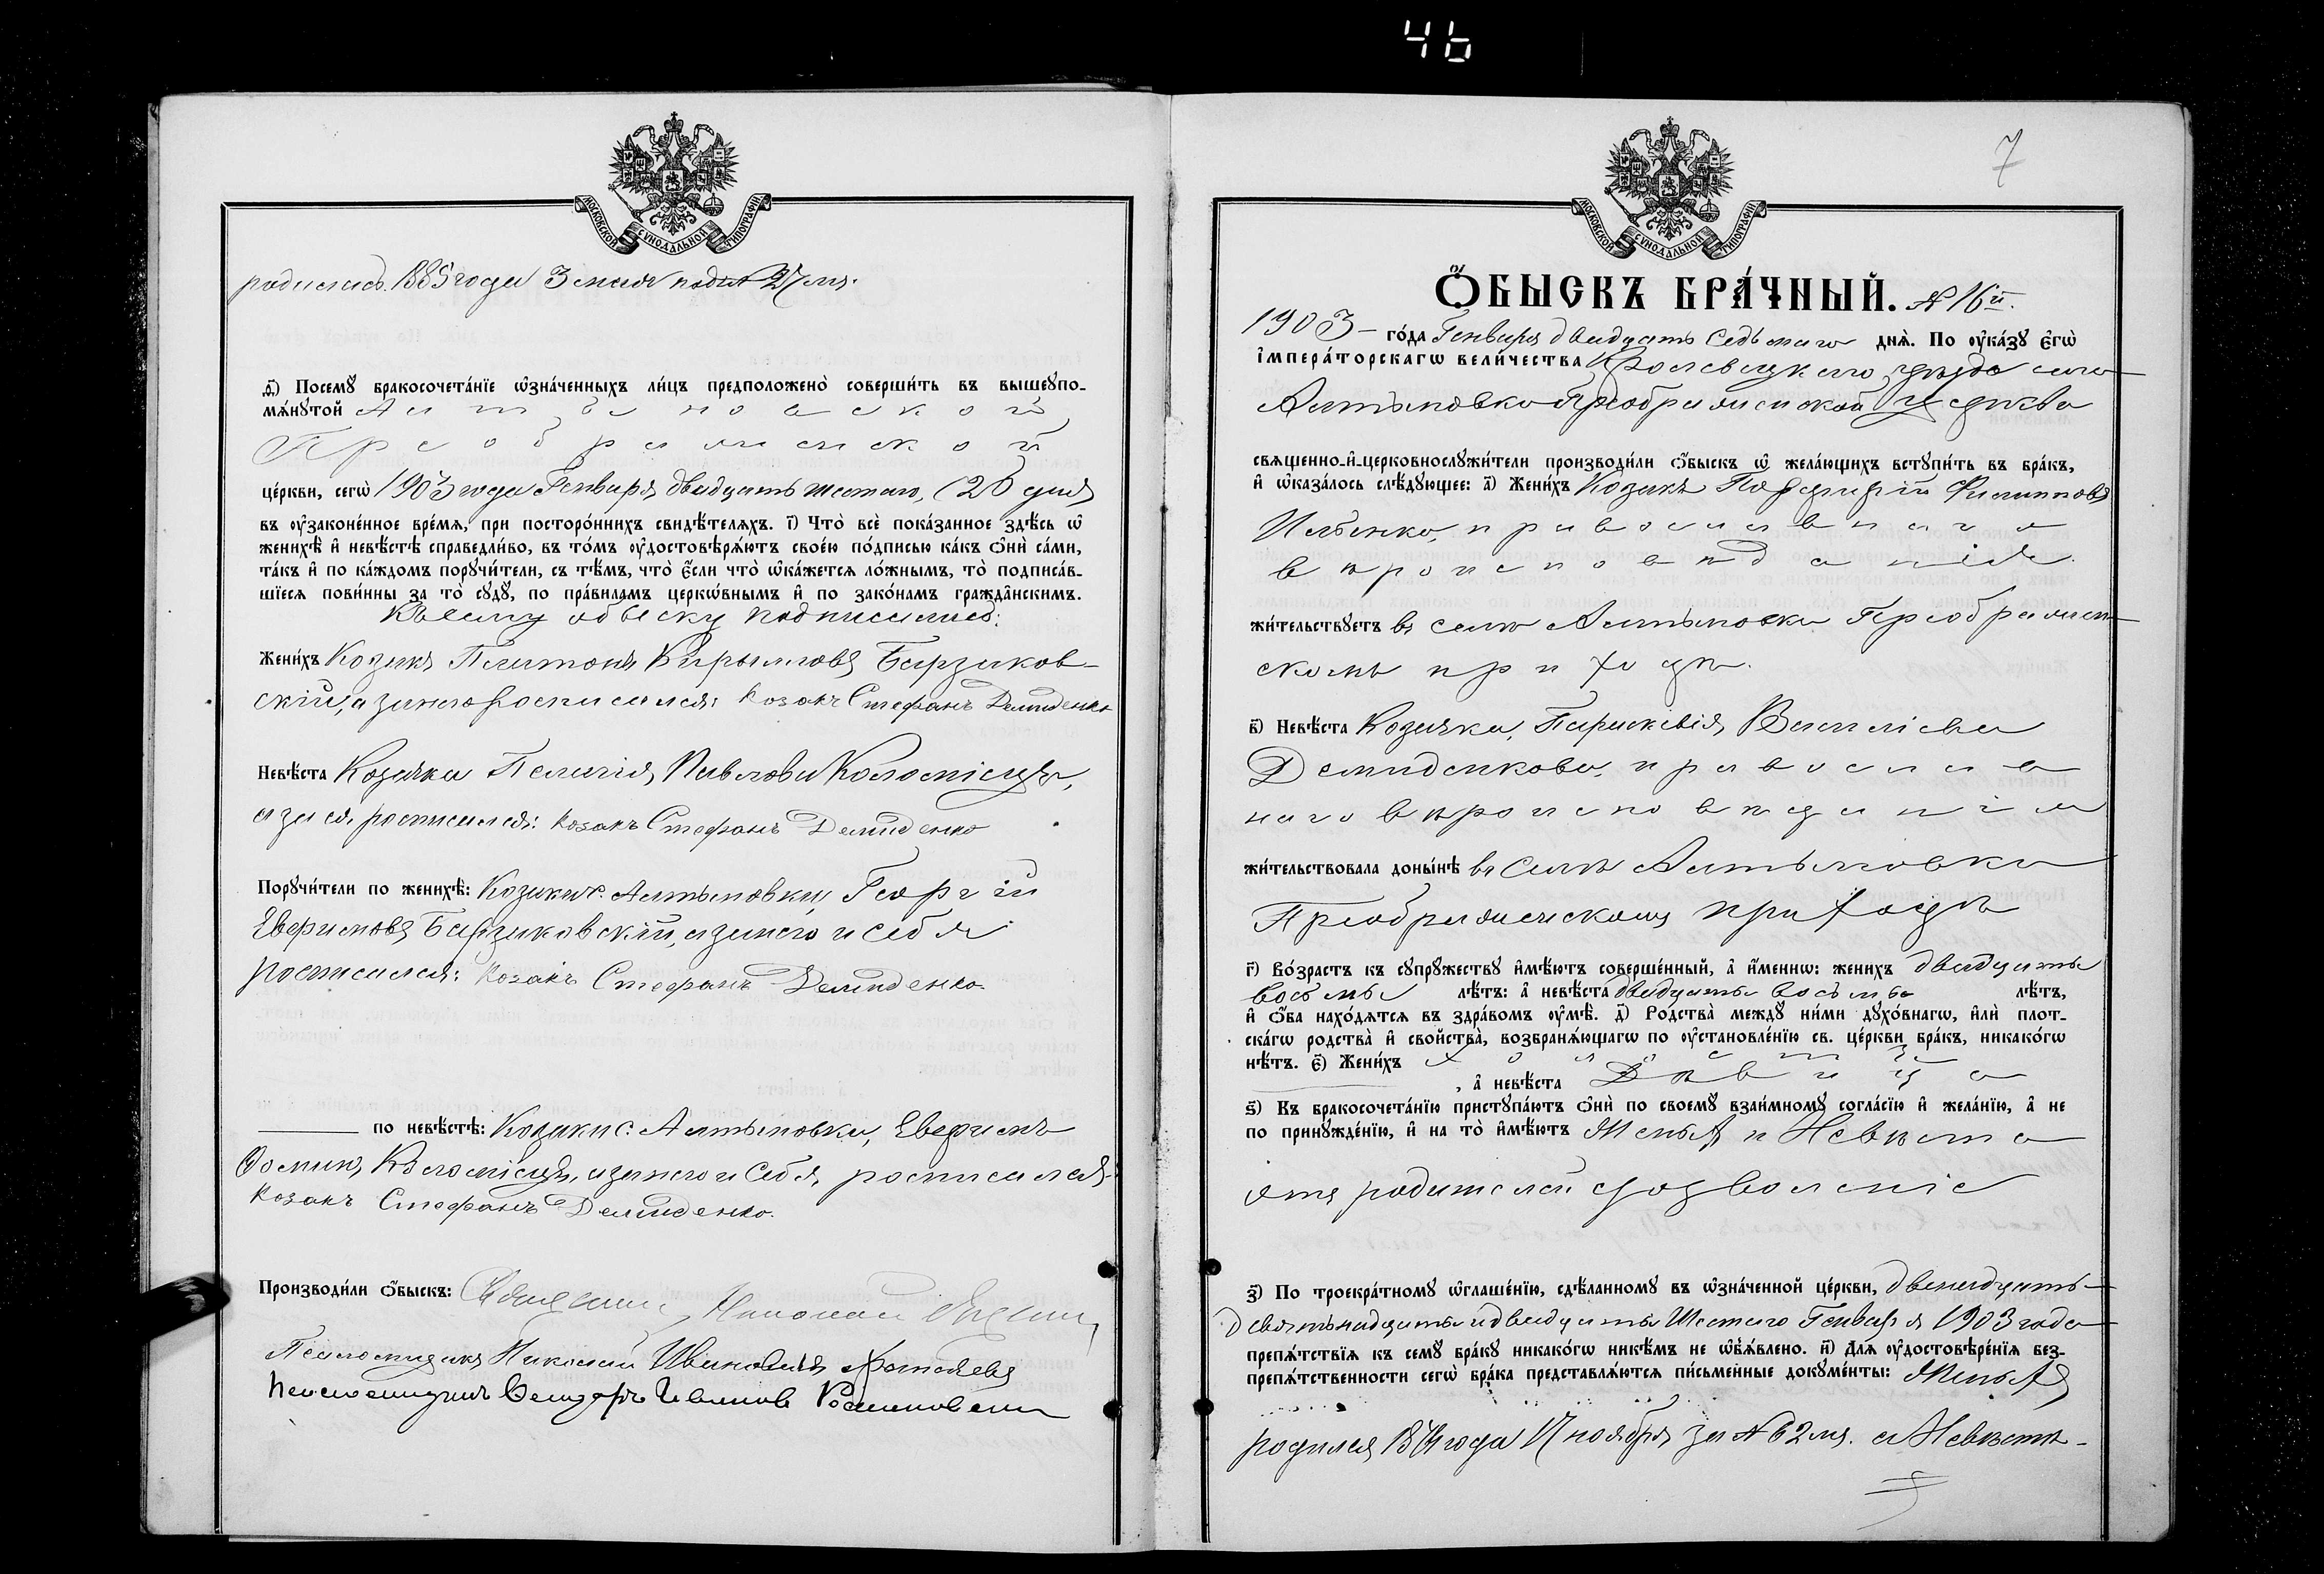 46
МОСКОВСКОЙ СѴНОДАЛЬНОЙ ТИПОГРАФІИ
родилась 1885 года 3 мая под № 27 мъ.
д҃і) Посемꙋ̀ бракосочета́нїе ѡ҆зна́ченныхъ ли́цъ предположено̀ соверши́ть въ вышеꙋпо-
мѧ́нꙋтой Алтыновской
Преображенской
це́ркви, сегѡ̀ 1903 года Генваря двадцать шестаго, (26) дня
въ ᲂу҆законе́нное вре́мѧ, при посторо́ннихъ свидѣ́телѧхъ. і҃) Что̀ всѐ пока́занное здѣ́сь ѡ҆
женихѣ̀ и҆ невѣ́стѣ справедли́во, въ то́мъ ᲂу҆достовѣрѧ́ютъ свое́ю по́дписью ка́къ ѻ҆нѝ са́ми,
та́къ и҆ по ка́ждомъ порꙋчи́тели, съ тѣ́мъ, что̀ є҆́сли что̀ ѡ҆ка́жетсѧ ло́жнымъ, то̀ подписа́в-
шїесѧ пови́нны за то̀ сꙋдꙋ̀, по пра́виламъ церко́внымъ и҆ по зако́намъ гражда́нскимъ.
Къ сему обыску подписались:
Жени́хъ Козакъ Платонъ Кириловъ Барзаков-
скій, а за него росписался: Козакъ Стефанъ Демиденко
Невѣ́ста Козачка Пелагія Павлова Коломіецъ,
а за ея росписался: Козакъ Стефанъ Демиденко
Порꙋчи́тели по женихѣ̀: Козаки с. Алтыновки, Георгій
Евфимовъ Барзаковскій, а за него и себя
росписался: Козакъ Стефанъ Демиденко.
по невѣ́стѣ: Козаки с. Алтыновки, Евфимъ
Фоминъ Коломіецъ, а за него и себя, росписался:
Козакъ Стефанъ Демиденко.
Производи́ли ѻ҆́быскъ: Священникъ Николай
Псаломщикъ Николай Ивановичъ
Псаломщикъ Ивановъ
7
МОСКОВСКОЙ СѴНОДАЛЬНОЙ ТИПОГРАФІИ
Ѻ҆́БЫСКЪ БРА́ЧНЫЙ. № 16й.
1903 – го́да Генваря двадцать седьмаго днѧ̀. По ᲂу҆ка́зꙋ є҆гѡ̀
і҆мпера́торскагѡ вели́чества Кролевецкаго уѣзда села
Алтыновки Преображенской церкви
свѧщенно-и҆-церковнослꙋжи́тели производи́ли ѻ҆́быскъ ѡ҆ жела́ющихъ встꙋпи́ть въ бра́къ,
и҆ ѡ҆каза́лось слѣ́дꙋющее: а҃) Жени́хъ Козакъ Порфирій Филипповъ
Ильенко, православнаго
вѣроисповѣданія
жи́тельствꙋетъ въ селѣ Алтыновки Преображен-
скомъ приходѣ.
в҃) Невѣ́ста Козачка, Параскевія, Василіева
Демиденкова, православ
наго вѣроисповѣданія
жи́тельствовала донынѣ̀ въ селѣ Алтыновки
Преображенскомъ приходѣ
г҃) Во́зрастъ къ сꙋпрꙋ́жествꙋ и҆мѣ́ютъ соверше́нный, а҆ и҆́меннѡ: жени́хъ двадцать
восьмь лѣ́тъ: а҆ невѣ́ста двадцать восьмь лѣ́тъ,
и҆ ѻ҆́ба нахо́дѧтсѧ въ здра́вомъ ᲂу҆мѣ̀. д҃) Родства̀ междꙋ̀ ни́ми дꙋхо́внагѡ, и҆лѝ плот-
ска́гѡ родства̀ и҆ сво́йства, возбранѧ́ющагѡ по ᲂу҆становле́нїю св. це́ркви бра́къ, никако́гѡ
нѣ́тъ. є҃) Жени́хъ холостъ
, а҆ невѣ́ста Дѣвица
ѕ҃) Къ бракосочета́нїю пристꙋпа́ютъ ѻ҆нѝ по своемꙋ̀ взаи́мномꙋ согла́сїю и҆ жела́нїю, а҆ не
по принꙋжде́нїю, и҆ на то̀ и҆мѣ́ютъ Женихъ и Невѣста
отъ родителей дозволеніе
з҃) По троекра́тномꙋ ѡ҆глаше́нїю, сдѣ́ланномꙋ въ ѡ҆зна́ченной це́ркви, двенадцать
девятьнадцать и двадцать шестаго Генваря 1903 года
препѧ́тствїѧ къ семꙋ̀ бра́кꙋ никако́гѡ никѣ́мъ не ѡ҆б̾ѧ́влено. и҃) Длѧ̀ ᲂу҆достовѣре́нїѧ без-
препѧ́тственности сегѡ̀ бра́ка представлѧ́ютсѧ пи́сьменные докꙋме́нты: Женихъ
родился 1874 года 17 ноября за № 62 мъ. а Невѣста-